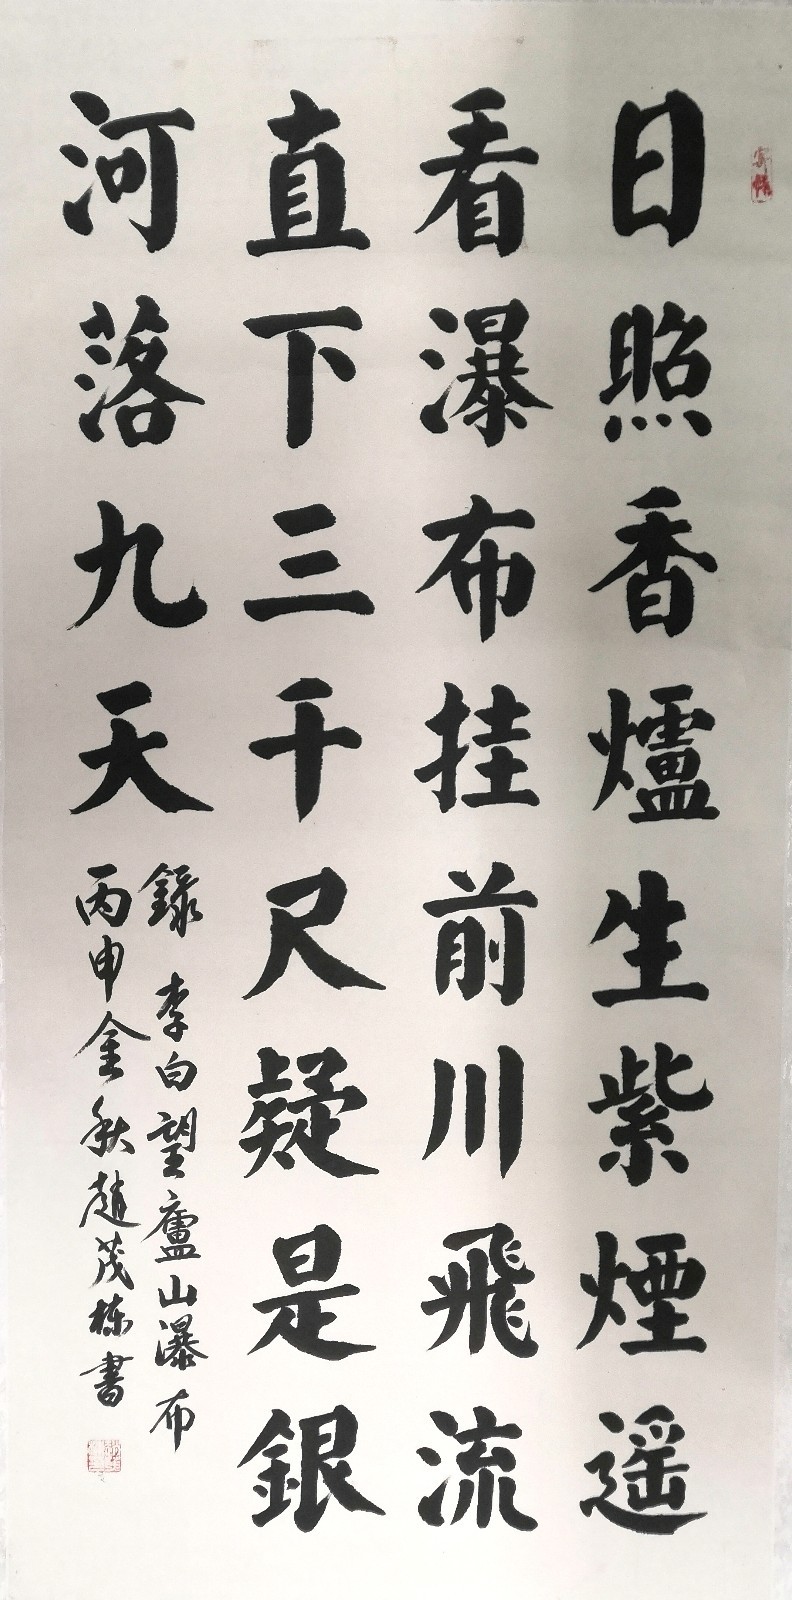 日照香爐生紫煙遥
看瀑布挂前川飛流
直下三千尺疑是銀
河落九天
録李白望廬山瀑布
丙申金秋趙茂栋書